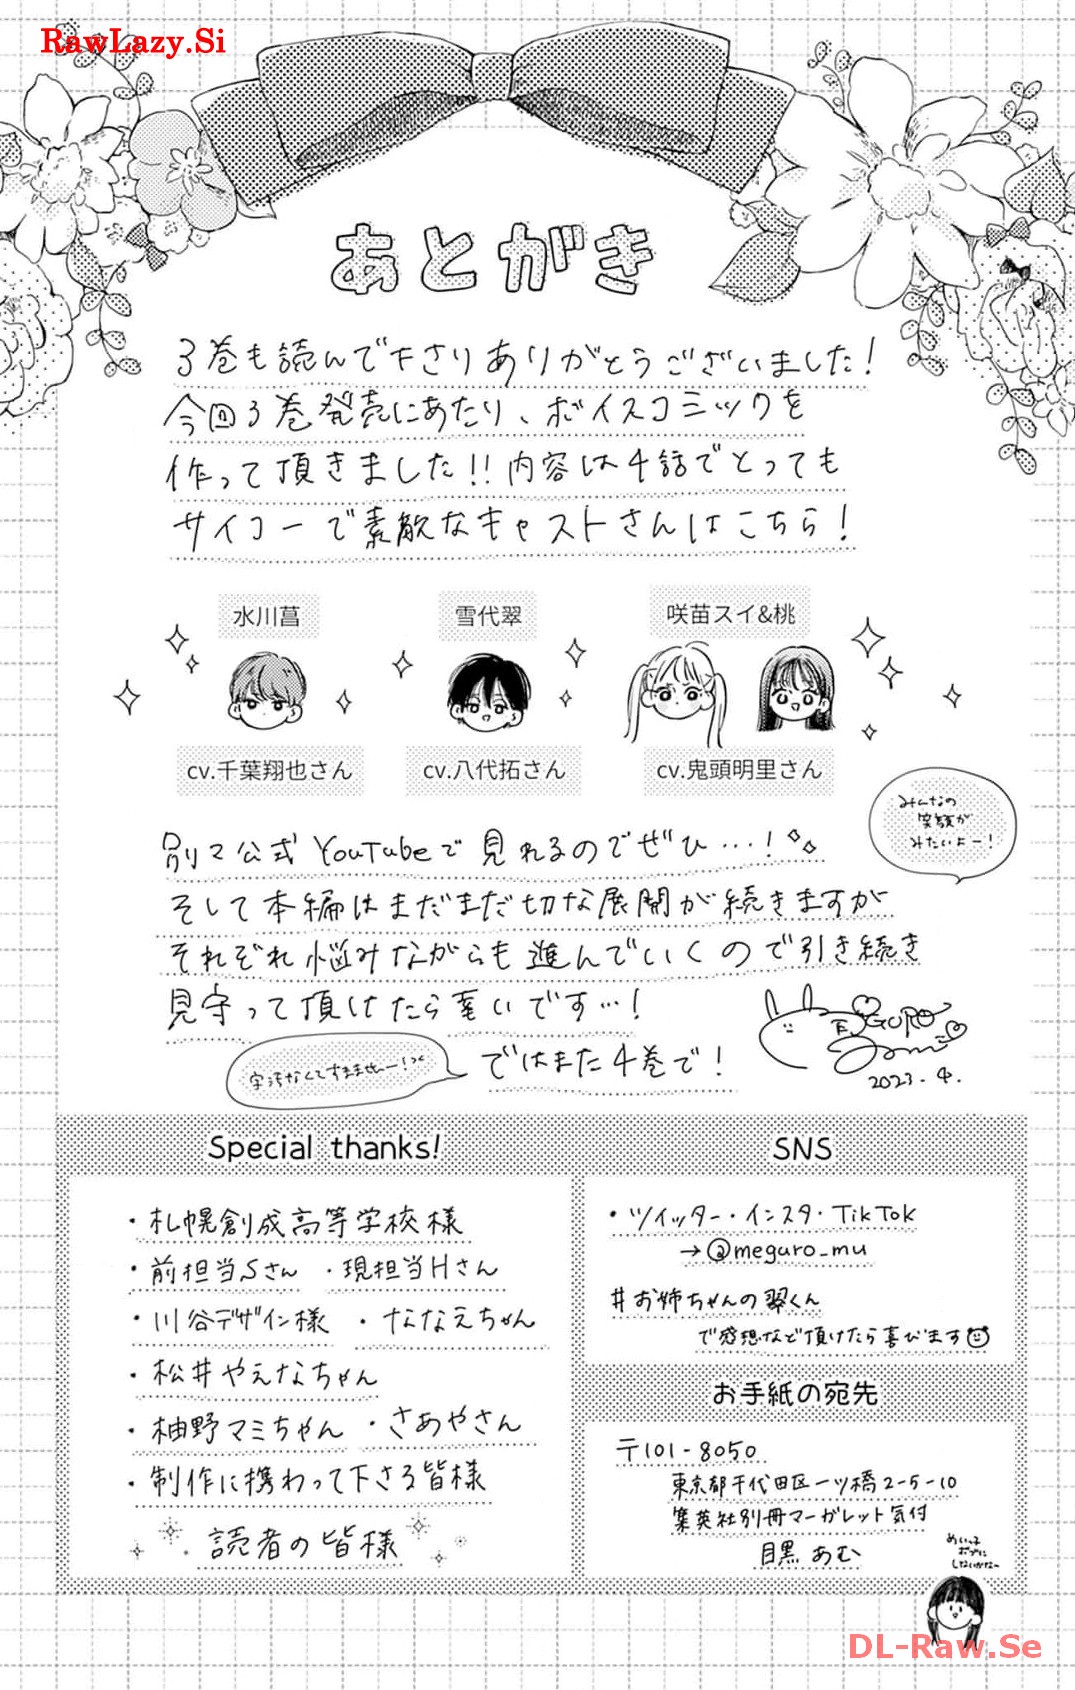 RawLazy.Si
あとがき
3巻も読んで下さりありがとうございました!
今回3巻発売にあたり、ボイスコミックを
作って頂きました!!内容は4話でとっても
サイコーで素敵なキャストさんはこちら!
水川菖
雪代翠
咲苗スイ&桃
cv.千葉翔也さん
cv.八代拓さん
cv.鬼頭明里さん
みんなの
笑顔が
みたいよー!
別マ公式YouTubeで見れるのでぜひ…!
そして本編はまだまだ切な展開が続きますが
それぞれ悩みながらも進んでいくので引き続き
見守って頂けたら幸いです…!
字汚なくてすみませんー!
ではまた4巻で!
2023.4.
Special thanks!
・札幌創成高等学校様
・前担当Sさん ・現担当Hさん
・川谷デザイン様 ・ななえちゃん
・松井やえなちゃん
・柚野マミちゃん ・さあやさん
・制作に携わって下さる皆様
読者の皆様
SNS
・ツイッター・インスタ・TikTok
→@meguro_mu
#お姉ちゃんの翠くん
で感想など頂けたら喜びます
お手紙の宛先
〒101-8050
東京都千代田区一ツ橋2-5-10
集英社別冊マーガレット気付
目黒あむ
DL-Raw.Se